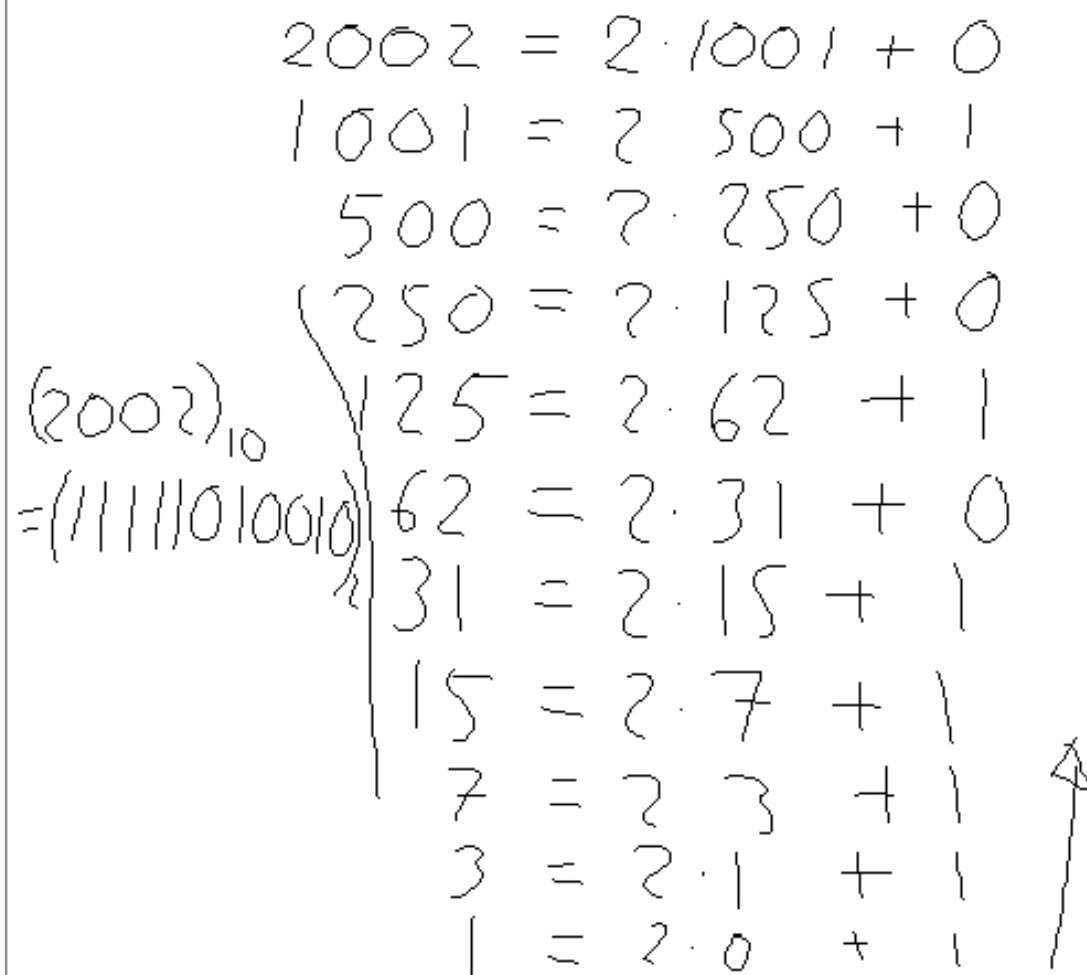 2002 = 2·1001 + 0
1001 = 2 500 + 1
500 = 2· 250 + 0
250 = 2·125 + 0
125 = 2·62 + 1
62 = 2·31 + 0
31 = 2·15 + 1
15 = 2·7 + 1
7 = 2 3 + 1
3 = 2·1 + 1
1 = 2·0 + 1
(2002)10
=(11111010010)2